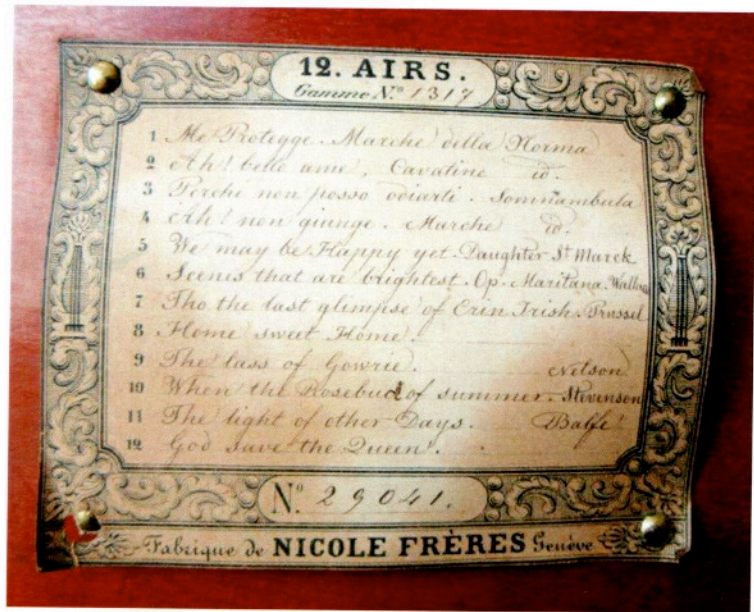 12. AIRS.
Gamme No. 1317
1 Me Protegge. Marche della Norma
2 Ah! belle ame, Cavatine id.
3 Perche non posso odiarti. Somnambula
4 Ah! non giunge. Marche id.
5 We may be Happy yet. Daughter St Marck
6 Scenes that are brightest. Op. Maritana
7 Tho the last glimpse of Erin Irish.
8 Home sweet Home.
9 The lass of Gowrie. Nelson
10 When the Rosebud of summer. Stevenson
11 The light of other Days. Balfe
12 God save the Queen.
No. 29041.
Fabrique de NICOLE FRÈRES Genève